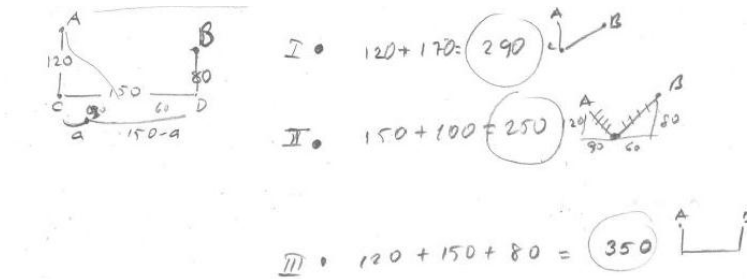 A
B
120
80
C 150 D
90 60
a 150-a
I • 120+170= 290
A B
c
II • 150+100=250
A B
120 80
90 60
III • 120+150+80 = 350
A